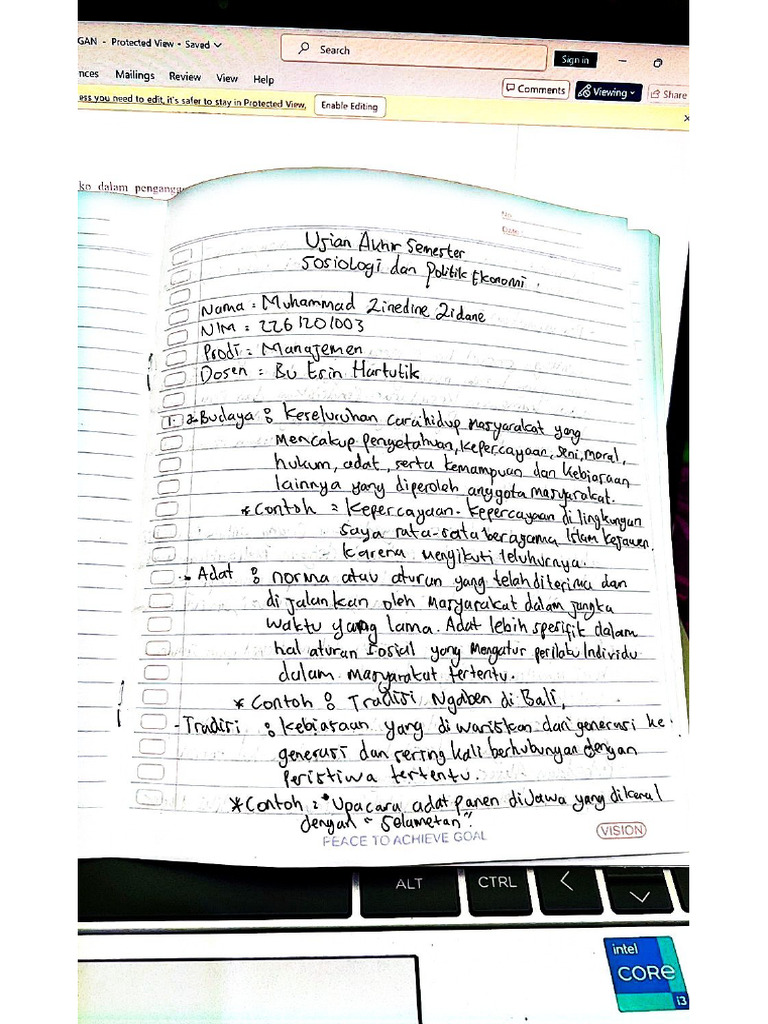 GAN - Protected View • Saved
Search
Sign in
nces Mailings Review View Help
Comments
Viewing
Share
ess you need to edit, it's safer to stay in Protected View.
Enable Editing
ko dalam pengangg
No.
Date:
Ujian Akhir Semester
Sosiologi dan Politik Ekonomi.
Nama : Muhammad Zinedine Zidane
NIM : 2261201003
Prodi : Manajemen
Dosen : Bu Erin Hartutik
1. a. Budaya : Keseluruhan cara hidup masyarakat yang
mencakup pengetahuan, kepercayaan, seni, moral,
hukum, adat, serta kemampuan dan kebiasaan
lainnya yang diperoleh anggota masyarakat.
* Contoh : Kepercayaan-kepercayaan di lingkungan
saya rata-rata beragama Islam kejawen
karena mengikuti leluhurnya.
- Adat : norma atau aturan yang telah diterima dan
di jalankan oleh masyarakat dalam jangka
waktu yang lama. Adat lebih spesifik dalam
hal aturan sosial yang mengatur perilaku Individu
dalam masyarakat tertentu.
* Contoh : Tradisi Ngaben di Bali,
- Tradisi : Kebiasaan yang di wariskan dari generasi ke
generasi dan sering kali berhubungan dengan
peristiwa tertentu.
* Contoh : "Upacara adat panen di Jawa yang dikenal
dengan "Selametan".
PEACE TO ACHIEVE GOAL
VISION
ALT
CTRL
intel
CORE
i3